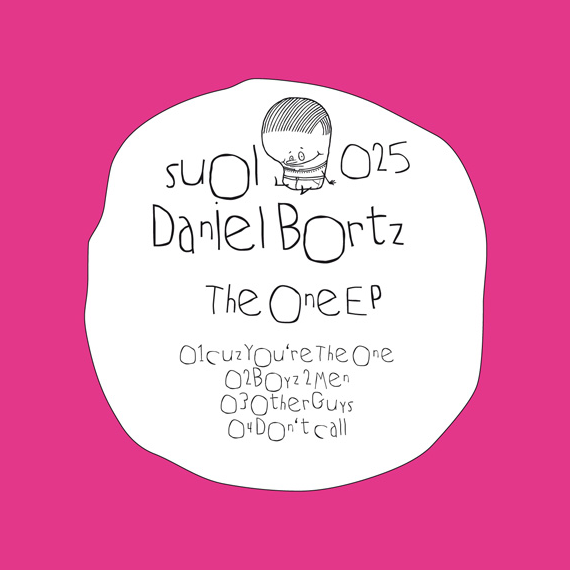 suol 025
Daniel Bortz
The One EP
01 cuz You're The One
02 Boyz 2 Men
03 Other Guys
04 Don't call